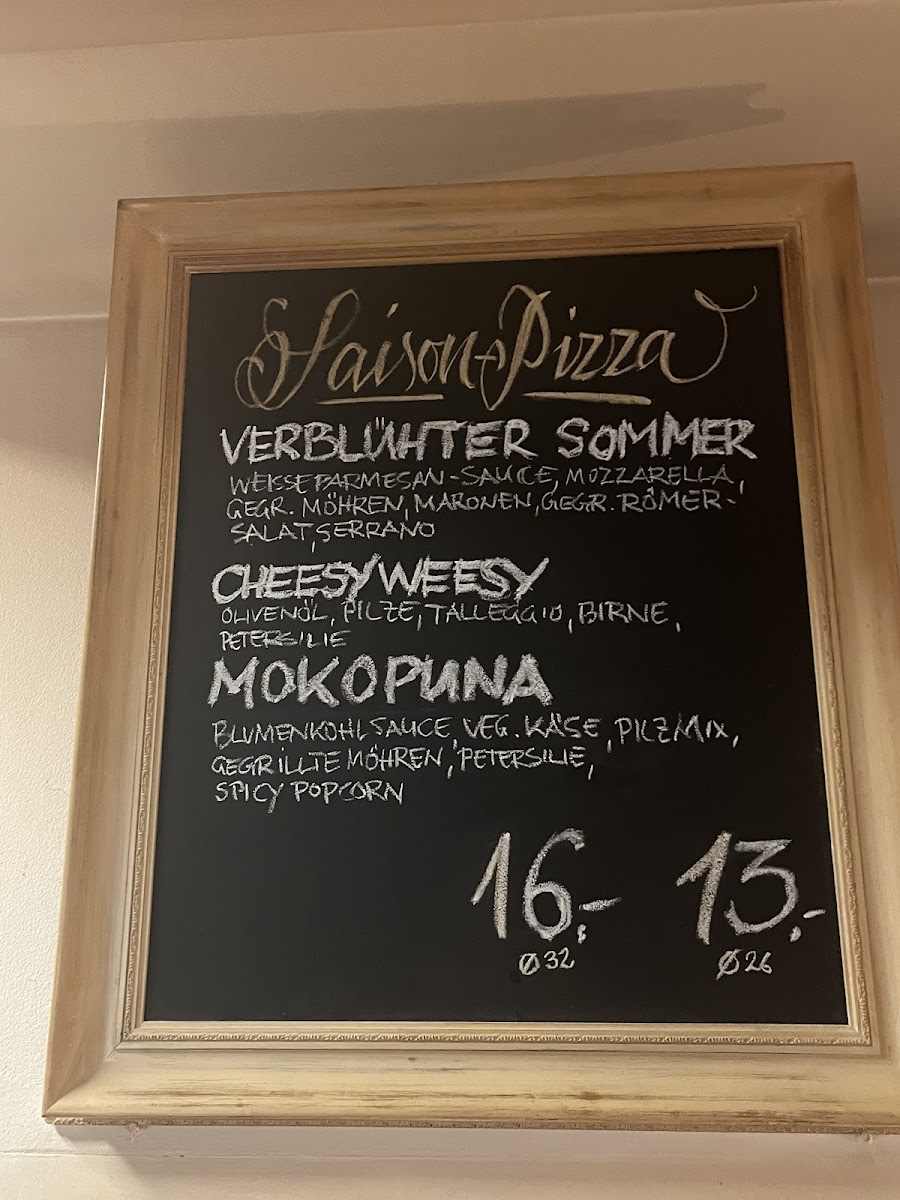 Saison-Pizza
VERBLÜHTER SOMMER
WEISSE PARMESAN-SAUCE, MOZZARELLA,
GEGR. MÖHREN, MARONEN, GEGR. RÖMER-
SALAT, SERRANO
CHEESY WEESY
OLIVENÖL, PILZE, TALLEGGIO, BIRNE,
PETERSILIE
MOKOPUNA
BLUMENKOHLSAUCE, VEG. KÄSE, PILZMIX,
GEGRILLTE MÖHREN, PETERSILIE,
SPICY POPCORN
16,- 13,-
Ø32 Ø26